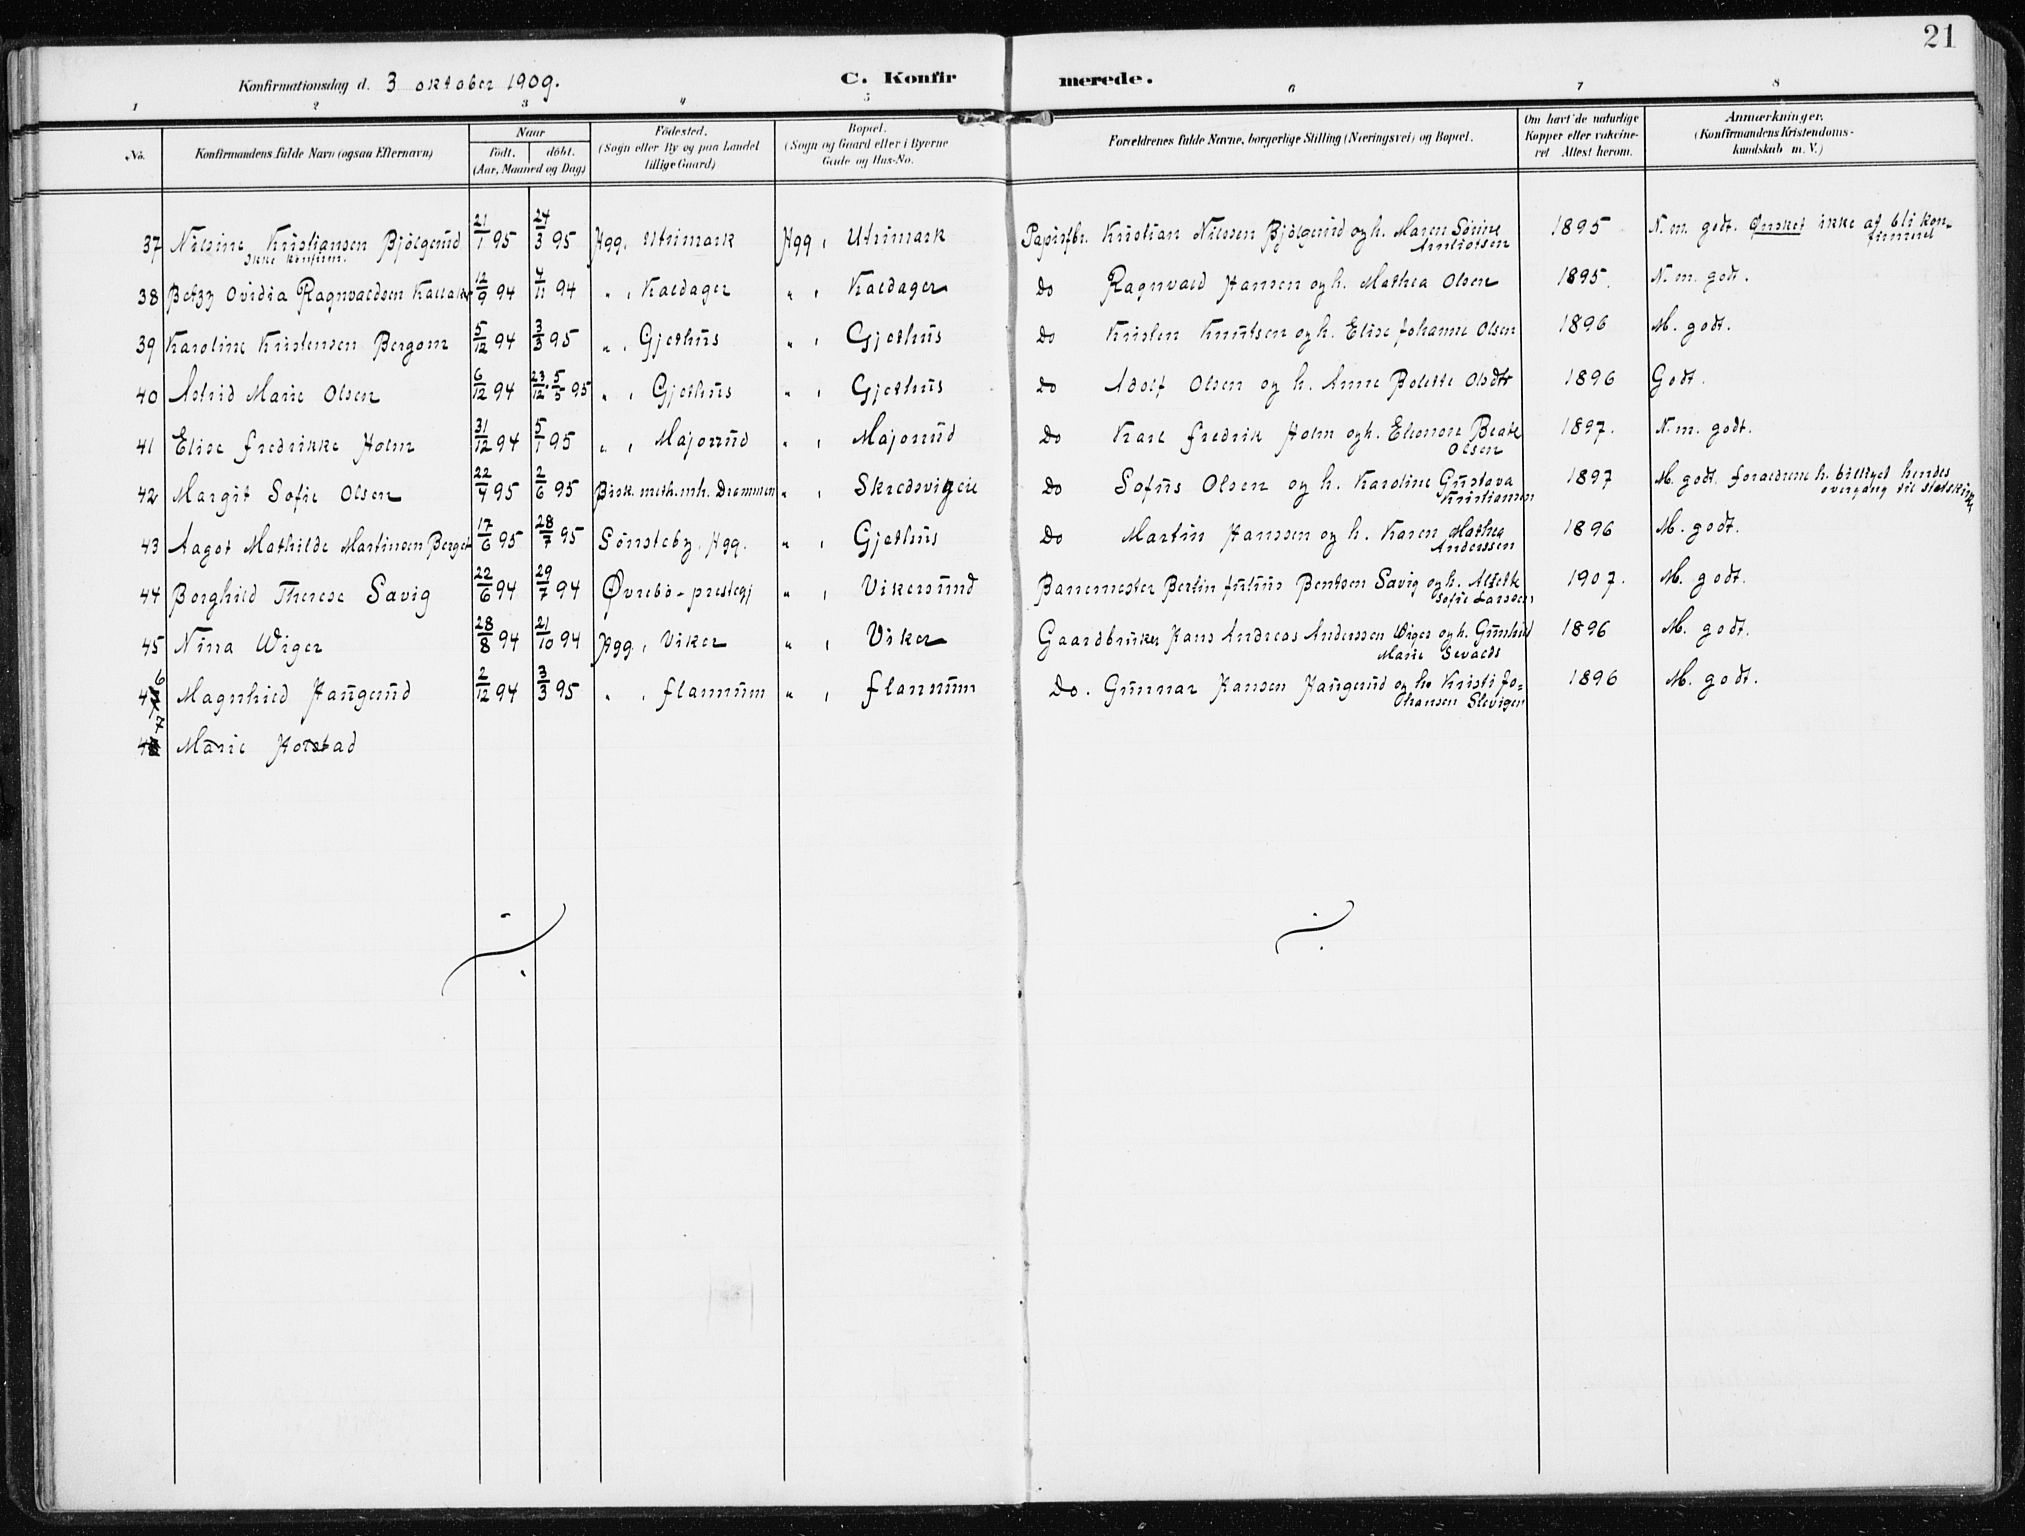 21
Konfirmationsdag d. 3 oktober 1909. C. Konfirmerede.
1 2 3 4 5 6 7 8
No. Konfirmandens fulde Navn (ogsaa Efternavn) Naar födt. döbt. (Aar, Maaned og Dag) Födested. (Sogn eller By og paa Landet tillige Gaard) Bopæl. (Sogn og Gaard eller i Byerne Gade og Hus-No. Forældrenes fulde Navne, borgerlige Stilling (Næringsvei) og Bopæl. Om havt de naturlige Kopper eller vakcineret Attest herom. Anmærkninger. (Konfirmandens Kristendomskundskab m. V.)
37 Nilsine Kristiansen Bjölgerud 21/1 95 24/3 95 Hgg. Utrimark Hgg, Utrimark Papirfbr. Kristian Nilssen Bjölgerud og h. Maren Sörine 1895 N. m. godt. Ønsket ikke at bli kon-
ikke konfirm. firmeret
38 Betzy Ovidia Ragnvaldsen 12/9 94 4/11 94 " , Kaldager " , Kaldager do Ragnvald Hansen og h. Mathea Olsen 1895. N. m. godt.
39 Karoline Kristensen Bergom 5/12 94 3/3 95 " , Gjethus " , Gjethus do Kristen Knutsen og h. Elise Johanne Olsen 1896 M. godt.
40 Astrid Marie Olsen 6/12 94 23/12 - 5/5 95 " , Gjethus " , Gjethus do Adolf Olsen og h. Anne Bolette Olsdtr 1896 Godt.
41 Elise Fredrikke Holm 31/12 94 5/1 95 " , Majorud " , Majorud do Karl Fredrik Holm og h. Elenore Beate 1897. N. m. godt.
Olsen
42 Margit Sofie Olsen 22/4 95 2/6 95 Bisk. meth. mh. Drammen " , Skredsvigeie do Sofus Olsen og h. Karoline Gustava 1897 M. godt. Foraeldrene h. billiget hendes
Kristiansen overgang til statskirk
43 Aagot Mathilde Martinsen Berget 17/6 95 28/7 95 Sönsteby. Hgg. " , Gjethus do Martin Hanssen og h. Karen Mathea 1896 M. godt.
Anderssen
44 Borghild Therese Savig 22/6 94 29/7 94 Øvrebö-prestegj " , Vikersund Banemester Bertin Julius Bentsen Savig og h. 1907. M. godt.
Sofie Larssen
45 Nina Wiger 28/8 94 21/10 94 Hgg. , Viker " , Viker Gaardbruker Hans Andreas Anderssen Wiger og h. Gunhild 1896 M. godt.
Marie
46 Magnhild Haugerud 2/12 94 3/3 95 " , Flannum " , Flannum Do. Gunnar Hansen Haugerud og h. Kristi Jo- 1896 M. godt.
hansen Slevigen
47 Marie Horstad